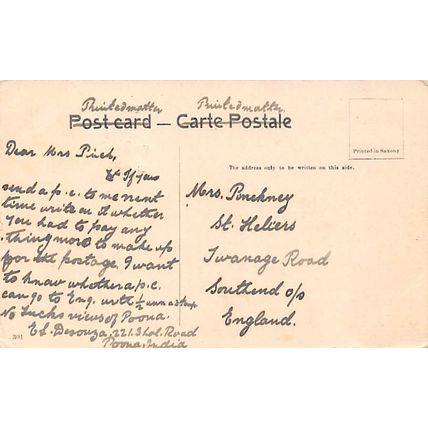 Printed matter Printed matter
Post card — Carte Postale
Printed in Saxony
The address only to be written on this side.
Dear Mrs Pinch,
If you
send a p.c. to me next
time write on it whether
you had to pay any
thing more to make up
for the postage. I want
to know whether a p.c.
can go to Eng. with ½ anna stamp
No Lucks views of Poona.
E.L. Desouza, 221. Shol. Road
Poona, India
301
Mrs. Pinckney
St. Heliers
Swanage Road
Southend o/s
England.